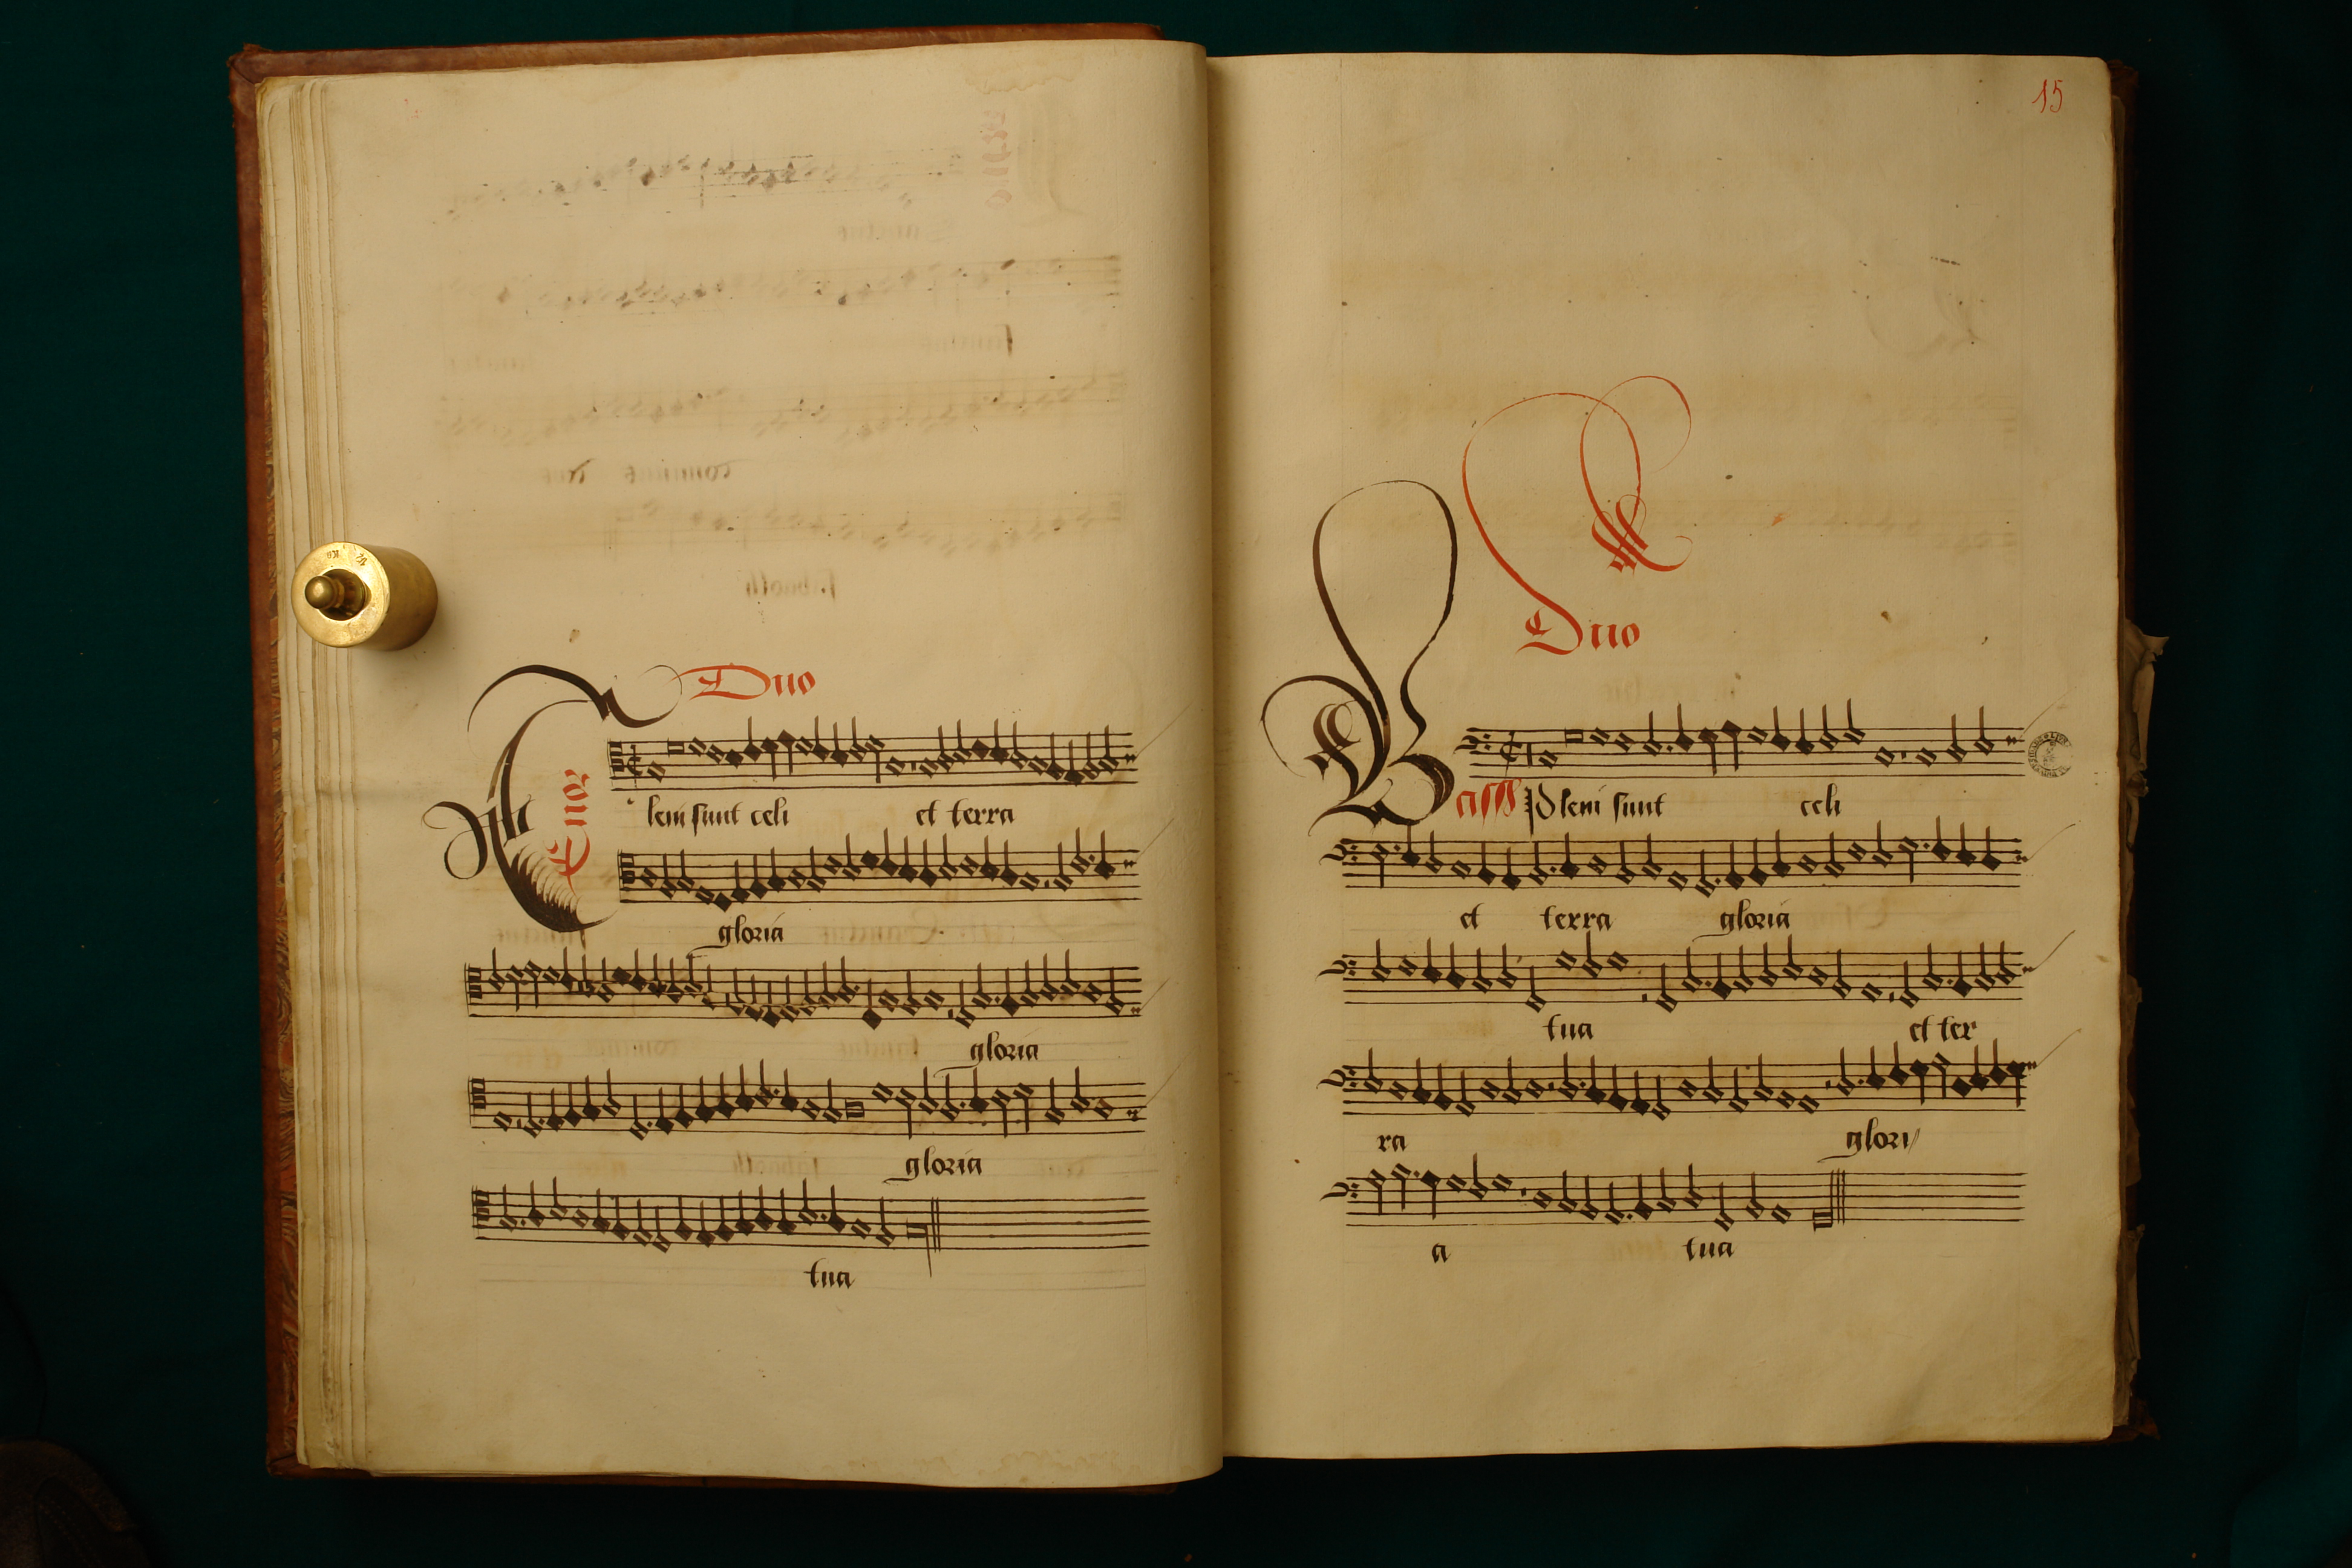 Duo
Tenor
leni sunt celi et terra
gloria
gloria
gloria
tua
15
Duo
Bass Pleni sunt celi
et terra gloria
tua et ter
ra glori
a tua